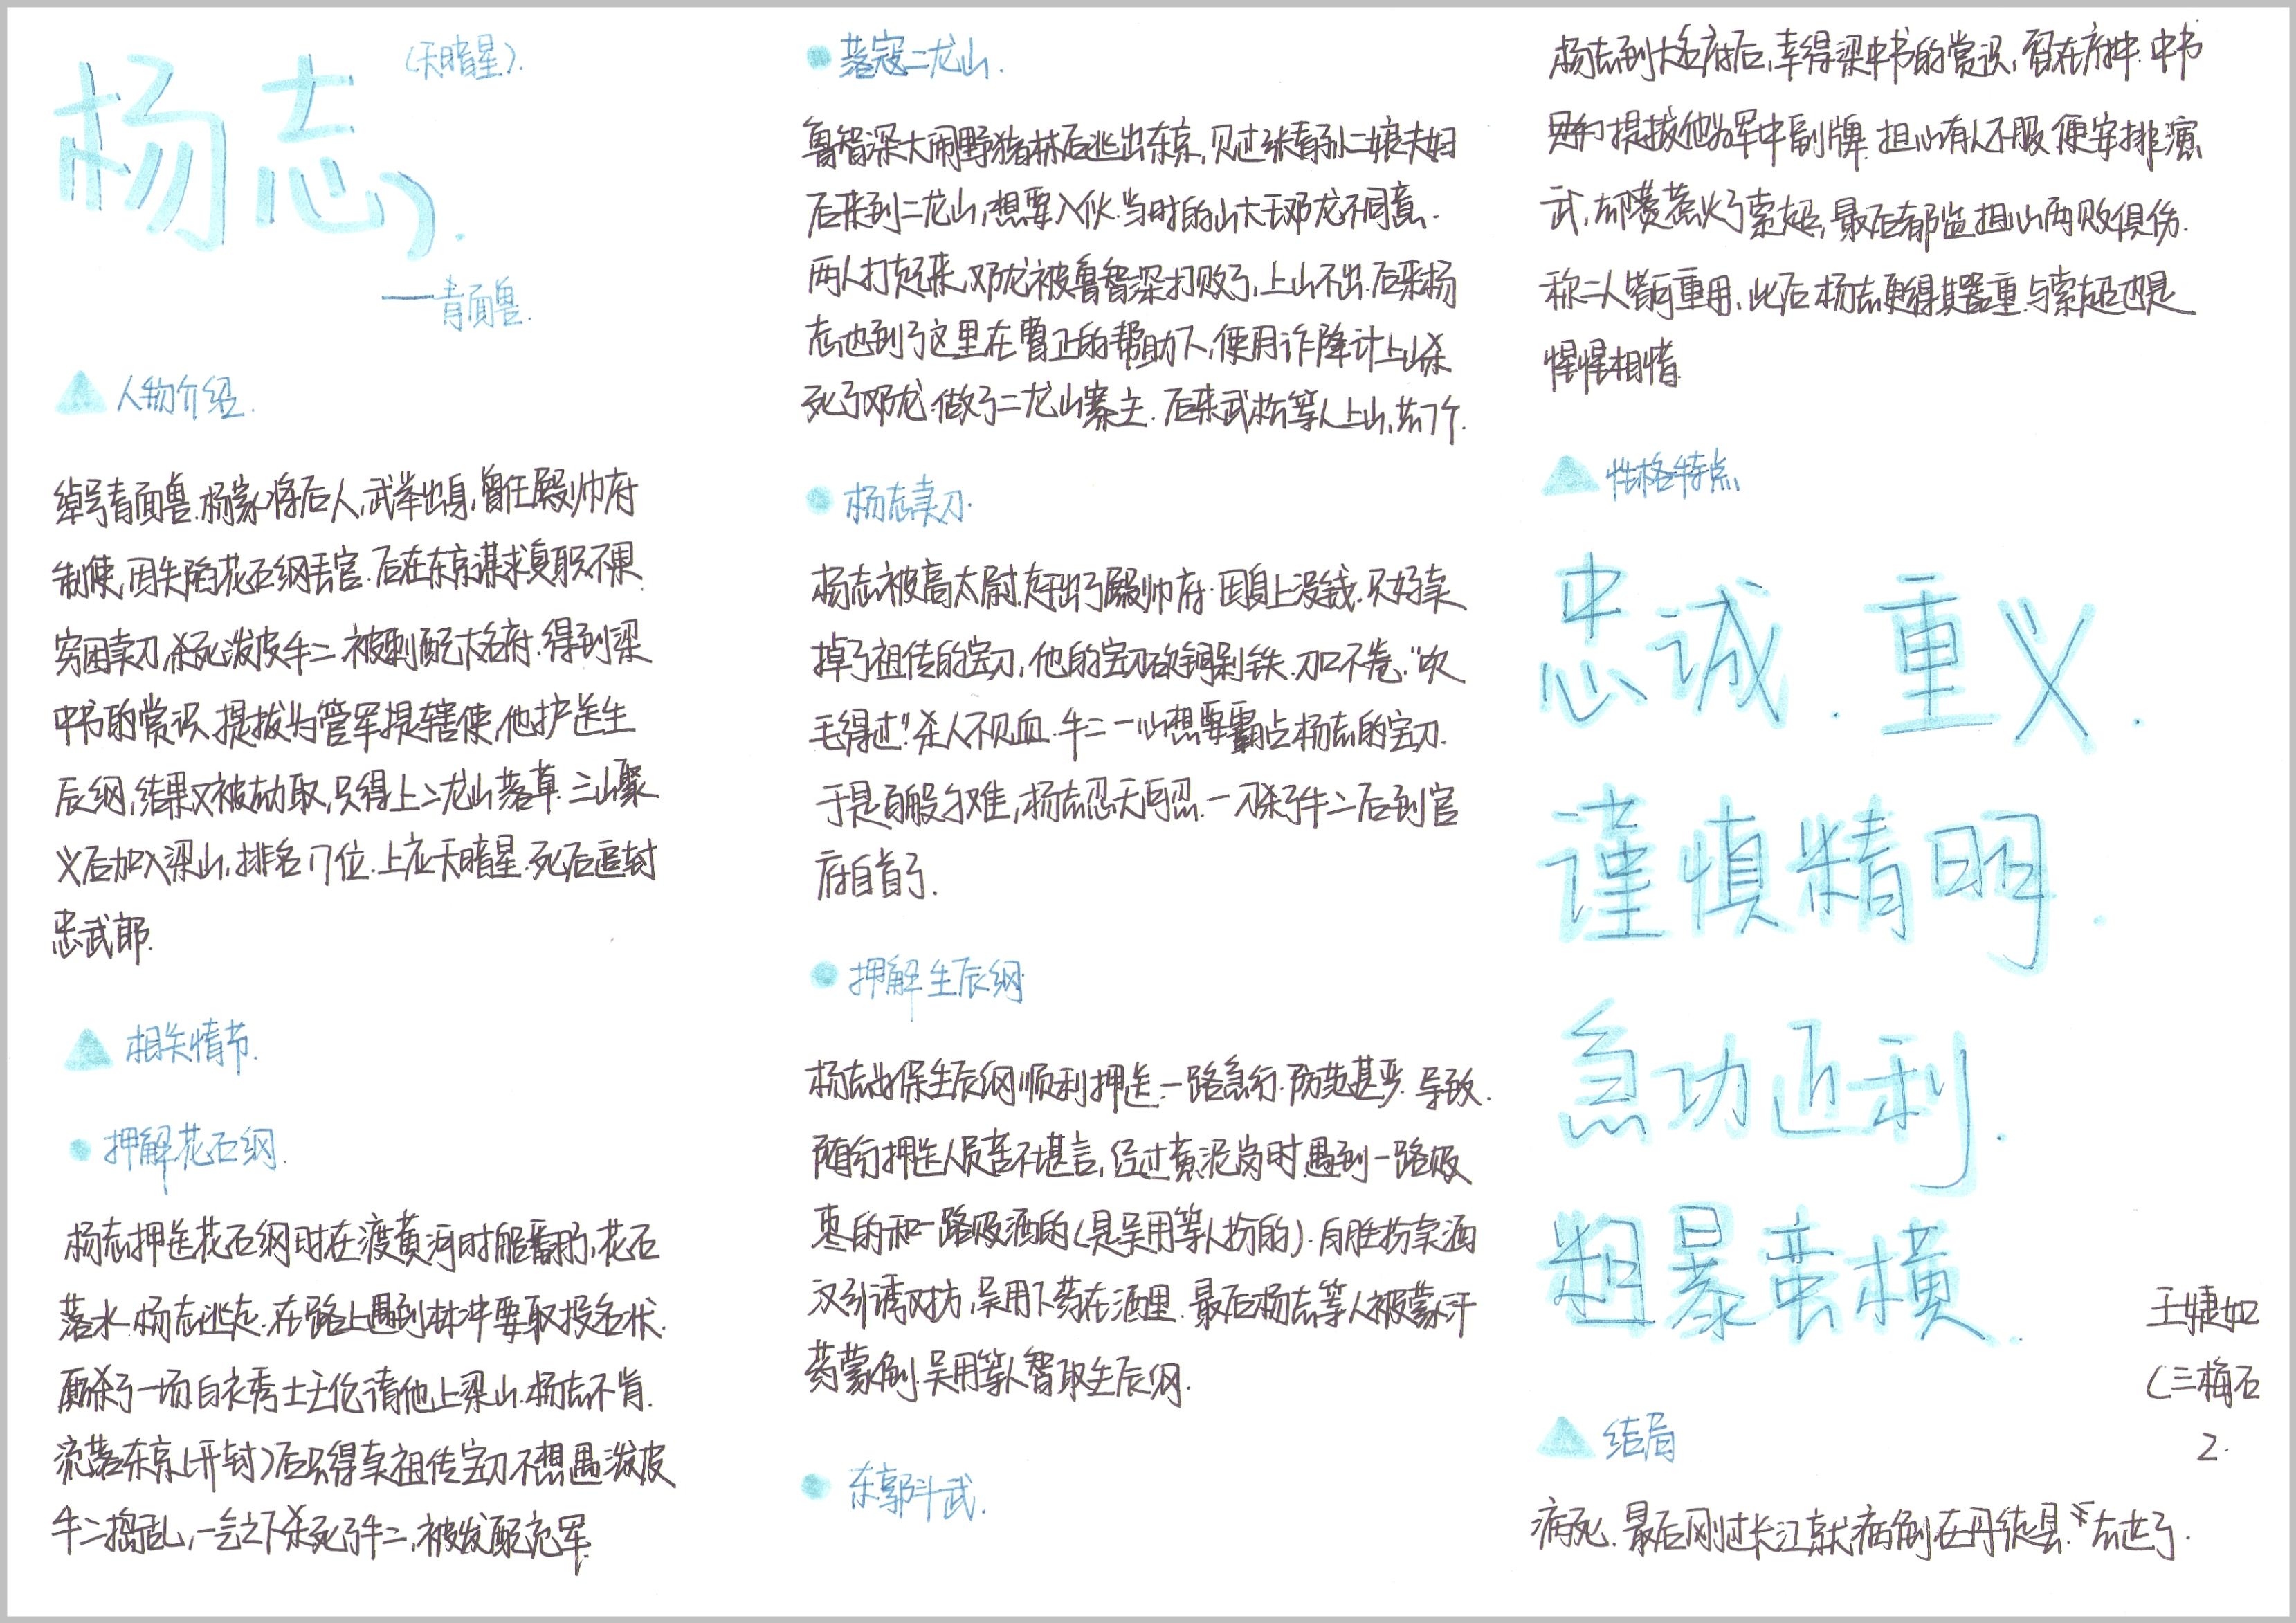 杨志
(天暗星).
——青面兽.
人物介绍.
绰号青面兽.杨家将后人,武举出身,曾任殿帅府
制使,因失陷花石纲丢官.后在东京谋求复职不果.
穷困卖刀,杀死泼皮牛二.被刺配大名府.得到梁
中书的赏识.提拔为管军提辖使,他护送生
辰纲,结果又被劫取,只得上二龙山落草.三山聚
义后加入梁山,排名17位.上应天暗星.死后追封
忠武郎.
相关情节.
押解花石纲.
杨志押送花石纲时在渡黄河时船翻了,花石
落水.杨志逃走.在路上遇到林冲要取投名状.
厮杀了一场.白衣秀士王伦请他上梁山.杨志不肯.
流落东京(开封)后只得卖祖传宝刀.不想遇泼皮
牛二捣乱,一气之下杀死了牛二,被发配充军.
落寇二龙山.
鲁智深大闹野猪林后逃出东京,见过张青孙二娘夫妇
后来到二龙山,想要入伙.当时的山大王邓龙不同意.
两人打起来,邓龙被鲁智深打败了,上山不出.后来杨
志也到了这里在曹正的帮助下,使用诈降计上山杀
死了邓龙.做了二龙山寨主.后来武松等人上山,共7个.
杨志卖刀.
杨志被高太尉赶出了殿帅府.因身上没钱.只好卖
掉了祖传的宝刀,他的宝刀砍铜剁铁.刀口不卷."吹
毛得过".杀人不见血.牛二一心想要霸占杨志的宝刀.
于是百般刁难,杨志忍无可忍.一刀杀了牛二后到官
府自首了.
押解生辰纲.
杨志为保生辰纲顺利押送.一路急行.防范甚严.导致.
随行押送人员苦不堪言,经过黄泥岗时.遇到一路贩
枣的和一路贩酒的(是吴用等人扮的).白胜扮卖酒
汉引诱对方,吴用下药在酒里.最后杨志等人被蒙汗
药蒙倒.吴用等人智取生辰纲.
东郭斗武.
杨志到大名府后,幸得梁中书的赏识,留在府中.中书
提拔他为军中副牌.担心有人不服.便安排演
武,惹火了索超,最后都监担心两败俱伤.
称二人皆可重用.此后杨志更得其器重.与索超也是
惺惺相惜.
性格特点
忠诚.重义.
谨慎精明.
急功近利.
粗暴蛮横.
结局
病死.最后刚过长江就病倒在丹徒县.去世了.
王婕如
(三梅石
2.